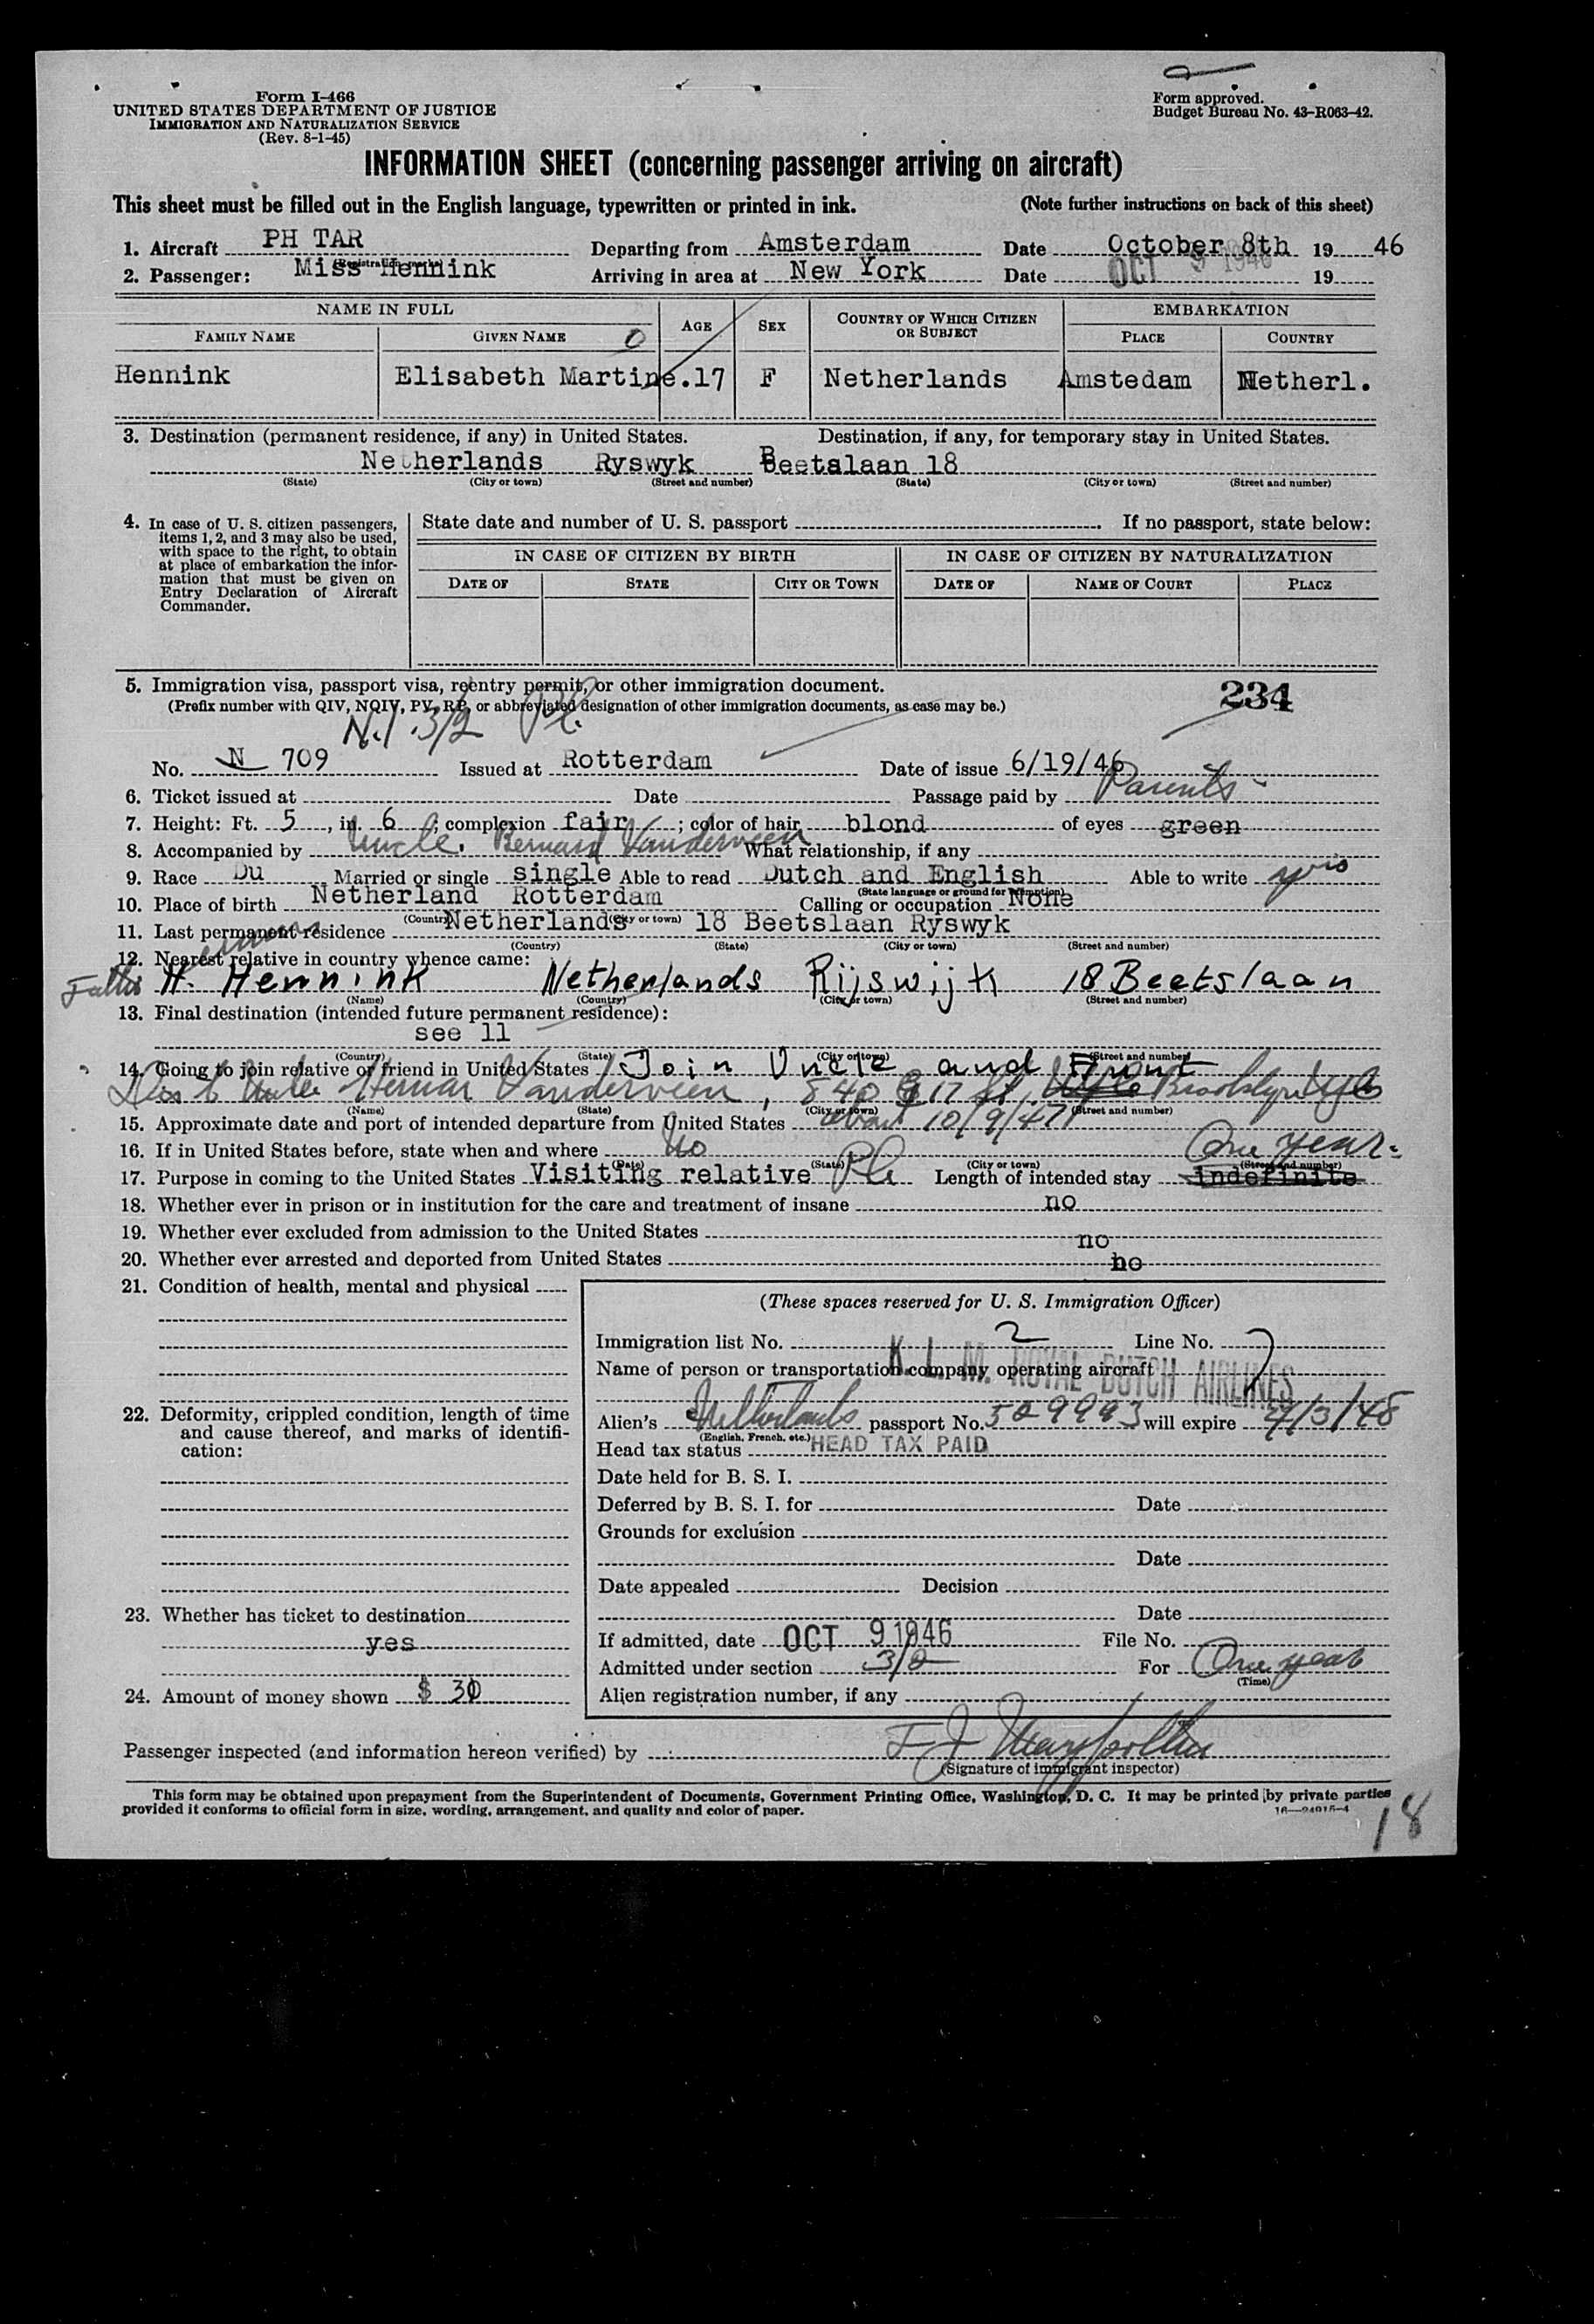 Form I-466
UNITED STATES DEPARTMENT OF JUSTICE
IMMIGRATION AND NATURALIZATION SERVICE
(Rev. 8-1-45)
Form approved.
Budget Bureau No. 43-R063-42.
INFORMATION SHEET (concerning passenger arriving on aircraft)
This sheet must be filled out in the English language, typewritten or printed in ink. (Note further instructions on back of this sheet)
1. Aircraft PH TAR Departing from Amsterdam Date October 8th 19 46
(Registration marks)
2. Passenger: Miss Hennink Arriving in area at New York Date OCT 9 1946 19
NAME IN FULL AGE SEX COUNTRY OF WHICH CITIZEN OR SUBJECT EMBARKATION
FAMILY NAME GIVEN NAME PLACE COUNTRY
Hennink Elisabeth Martine. 17 F Netherlands Amstedam Netherl.
3. Destination (permanent residence, if any) in United States. Destination, if any, for temporary stay in United States.
Netherlands Ryswyk Beetslaan 18
(State) (City or town) (Street and number) (State) (City or town) (Street and number)
4. In case of U. S. citizen passengers, items 1, 2, and 3 may also be used, with space to the right, to obtain at place of embarkation the information that must be given on Entry Declaration of Aircraft Commander.
State date and number of U. S. passport . If no passport, state below:
IN CASE OF CITIZEN BY BIRTH IN CASE OF CITIZEN BY NATURALIZATION
DATE OF STATE CITY OR TOWN DATE OF NAME OF COURT PLACE
5. Immigration visa, passport visa, reentry permit, or other immigration document. 234
(Prefix number with QIV, NQIV, PV, RP, or abbreviated designation of other immigration documents, as case may be.)
3/2 Pl.
No. N 709 Issued at Rotterdam Date of issue 6/19/46
6. Ticket issued at Date Passage paid by Parents
7. Height: Ft. 5, in. 6; complexion fair; color of hair blond of eyes green
8. Accompanied by Uncle. Bernard Vanderveen What relationship, if any
9. Race Du Married or single single Able to read Dutch and English Able to write yes
(State language or ground for exemption)
10. Place of birth Netherland Rotterdam Calling or occupation None
(Country) (City or town)
11. Last permanent residence Netherlands 18 Beetslaan Ryswyk
(Country) (State) (City or town) (Street and number)
12. Nearest relative in country whence came:
Father H. Hennink Netherlands Rijswijk 18 Beetslaan
(Name) (Country) (City or town) (Street and number)
13. Final destination (intended future permanent residence):
see 11
(Country) (State) (City or town) (Street and number)
14. Going to join relative or friend in United States Join Uncle and Aunt
Uncle Vanderveen, 840 E 17 St, Brooklyn NYC
(Name) (State) (City or town) (Street and number)
15. Approximate date and port of intended departure from United States about 10/9/47
16. If in United States before, state when and where No
(Date) (State) (City or town) (Street and number)
One year.
17. Purpose in coming to the United States Visiting relative Pl Length of intended stay indefinite
18. Whether ever in prison or in institution for the care and treatment of insane no
19. Whether ever excluded from admission to the United States no
20. Whether ever arrested and deported from United States no
21. Condition of health, mental and physical
22. Deformity, crippled condition, length of time and cause thereof, and marks of identification:
23. Whether has ticket to destination
yes
24. Amount of money shown $ 30
(These spaces reserved for U. S. Immigration Officer)
Immigration list No. 2 Line No. 7
Name of person or transportation company operating aircraft
K. L. M. ROYAL DUTCH AIRLINES
Alien's Netherlands passport No. 529993 will expire 4/3/48
(English, French, etc.)
Head tax status HEAD TAX PAID
Date held for B. S. I.
Deferred by B. S. I. for Date
Grounds for exclusion
Date
Date appealed Decision
Date
If admitted, date OCT 9 1946 File No.
Admitted under section 3/2 For One year
(Time)
Alien registration number, if any
Passenger inspected (and information hereon verified) by
(Signature of immigrant inspector)
This form may be obtained upon prepayment from the Superintendent of Documents, Government Printing Office, Washington, D. C. It may be printed by private parties
provided it conforms to official form in size, wording, arrangement, and quality and color of paper.
18